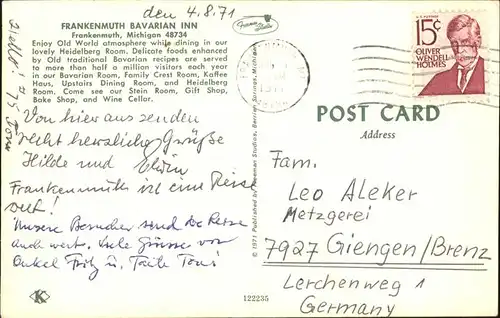 den 4.8.71
FRANKENMUTH BAVARIAN INN
Frankenmuth, Michigan 48734
Enjoy Old World atmosphere while dining in our
lovely Heidelberg Room. Delicate foods enhanced
by Old traditional Bavarian recipes are served
to more than half a million visitors each year
in our Bavarian Room, Family Crest Room, Kaffee
Haus, Upstairs Dining Room, and Heidelberg
Room. Come see our Stein Room, Gift Shop,
Bake Shop, and Wine Cellar.
Von hier aus senden
recht herzliche Grüße
Hilde und Edwin
Frankenmuth ist eine Reise
wert!
Unsere Besucher sind die Reise
auch wert. Viele Grüsse von
Onkel Fritz u. Tante Toni
K
122235
© 1971 Published by Penrod Studios, Berrien Springs, Michigan
U.S. POSTAGE
15¢
OLIVER
WENDELL
HOLMES
POST CARD
Address
Fam.
Leo Aleker
Metzgerei
7927 Giengen/Brenz
Lerchenweg 1
Germany